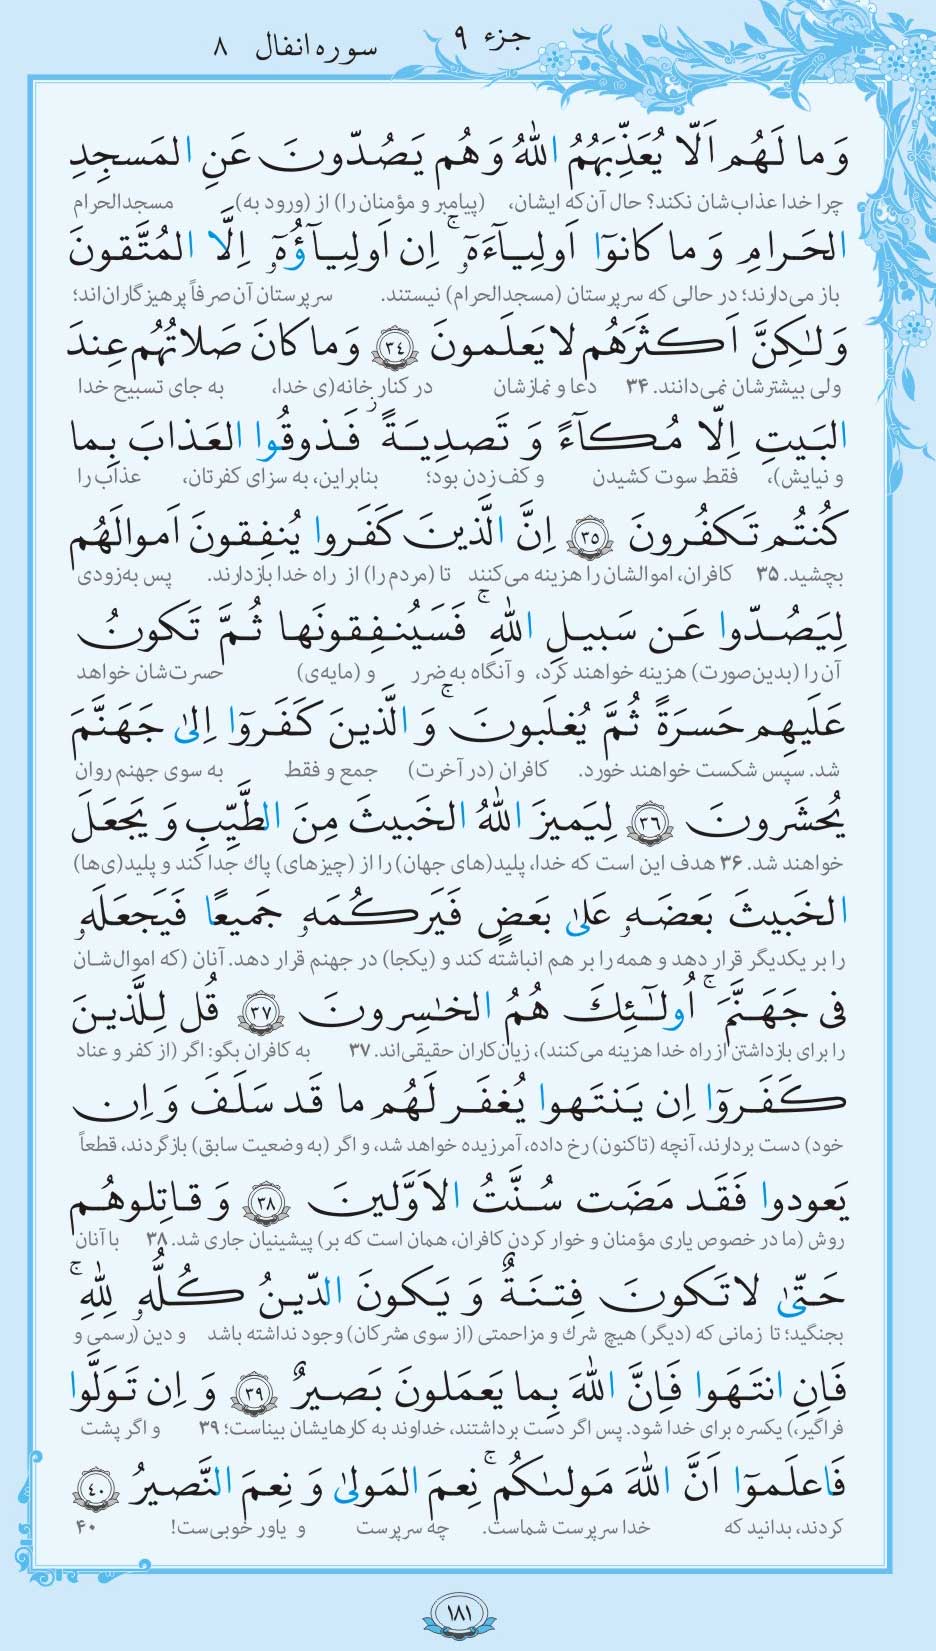 جزء ۹
سوره انفال ۸
وَ ما لَهُم اَلّا يُعَذِّبَهُمُ اللّٰهُ وَ هُم يَصُدّونَ عَنِ المَسجِدِ
چرا خدا عذاب‌شان نکند؟ حال آن‌که ایشان، (پیامبر و مؤمنان را) از (ورود به) مسجدالحرام
الحَرامِ وَ ما كانوٓا اَولِيآءَهٗٓ ۚ اِن اَولِيآؤُهٗٓ اِلَّا المُتَّقونَ
باز می‌دارند؛ در حالی که سرپرستان (مسجدالحرام) نیستند. سرپرستان آن صرفاً پرهیزگاران‌اند؛
وَلٰكِنَّ اَكثَرَهُم لا يَعلَمونَ ﴿٣٤﴾ وَ ما كانَ صَلاتُهُم عِندَ
ولی بیشترشان نمی‌دانند. ۳۴ دعا و نمازشان در کنار خانه(ی خدا، به جای تسبیح خدا
البَيتِ اِلّا مُكآءً وَ تَصدِيَةً ۚ فَذوقُوا العَذابَ بِما
و نیایش)، فقط سوت کشیدن و کف‌زدن بود؛ بنابراین، به سزای کفرتان، عذاب را
كُنتُم تَكفُرونَ ﴿٣٥﴾ اِنَّ الَّذينَ كَفَروا يُنفِقونَ اَموالَهُم
بچشید. ۳۵ کافران، اموالشان را هزینه می‌کنند تا (مردم را) از راه خدا بازدارند. پس به‌زودی
لِيَصُدّوا عَن سَبيلِ اللّٰهِ ۚ فَسَيُنفِقونَها ثُمَّ تَكونُ
آن را (بدین‌صورت) هزینه خواهند کرد، و آنگاه به ضرر و (مایه‌ی) حسرت‌شان خواهد
عَلَيهِم حَسرَةً ثُمَّ يُغلَبونَ ۚ وَ الَّذينَ كَفَروٓا اِلىٰ جَهَنَّمَ
شد. سپس شکست خواهند خورد. کافران (در آخرت) جمع و فقط به سوی جهنم روان
يُحشَرونَ ﴿٣٦﴾ لِيَميزَ اللّٰهُ الخَبيثَ مِنَ الطَّيِّبِ وَ يَجعَلَ
خواهند شد. ۳۶ هدف این است که خدا، پلید(های جهان) را از (چیزهای) پاك جدا کند و پلید(ی‌ها)
الخَبيثَ بَعضَهٗ عَلىٰ بَعضٍ فَيَركُمَهٗ جَميعًا فَيَجعَلَهٗ
را بر یکدیگر قرار دهد و همه را بر هم انباشته کند و (یکجا) در جهنم قرار دهد. آنان (که اموال‌شان
فى جَهَنَّمَ ۚ اُولٰٓئِكَ هُمُ الخٰسِرونَ ﴿٣٧﴾ قُل لِلَّذينَ
را برای بازداشتن از راه خدا هزینه می‌کنند)، زیان‌کاران حقیقی‌اند. ۳۷ به کافران بگو: اگر (از کفر و عناد
كَفَروٓا اِن يَنتَهوا يُغفَر لَهُم ما قَد سَلَفَ وَ اِن
خود) دست بردارند، آنچه (تاکنون) رخ داده، آمرزیده خواهد شد، و اگر (به وضعیت سابق) بازگردند، قطعاً
يَعودوا فَقَد مَضَت سُنَّتُ الاَوَّلينَ ﴿٣٨﴾ وَ قاتِلوهُم
روش (ما در خصوص یاری مؤمنان و خوار کردن کافران، همان است که بر) پیشینیان جاری شد. ۳۸ با آنان
حَتّىٰ لا تَكونَ فِتنَةٌ وَ يَكونَ الدّينُ كُلُّهٗ لِلّٰهِ ۚ
بجنگید؛ تا زمانی که (دیگر) هیچ شرك و مزاحمتی (از سوی مشرکان) وجود نداشته باشد و دین (رسمی و
فَاِنِ انتَهَوا فَاِنَّ اللّٰهَ بِما يَعمَلونَ بَصيرٌ ﴿٣٩﴾ وَ اِن تَوَلَّوا
فراگیر،) یکسره برای خدا شود. پس اگر دست برداشتند، خداوند به کارهایشان بیناست؛ ۳۹ و اگر پشت
فَاعلَموٓا اَنَّ اللّٰهَ مَولىٰكُم ۚ نِعمَ المَولىٰ وَ نِعمَ النَّصيرُ ﴿٤٠﴾
کردند، بدانید که خدا سرپرست شماست. چه سرپرست و یاور خوبی‌ست! ۴۰
۱۸۱